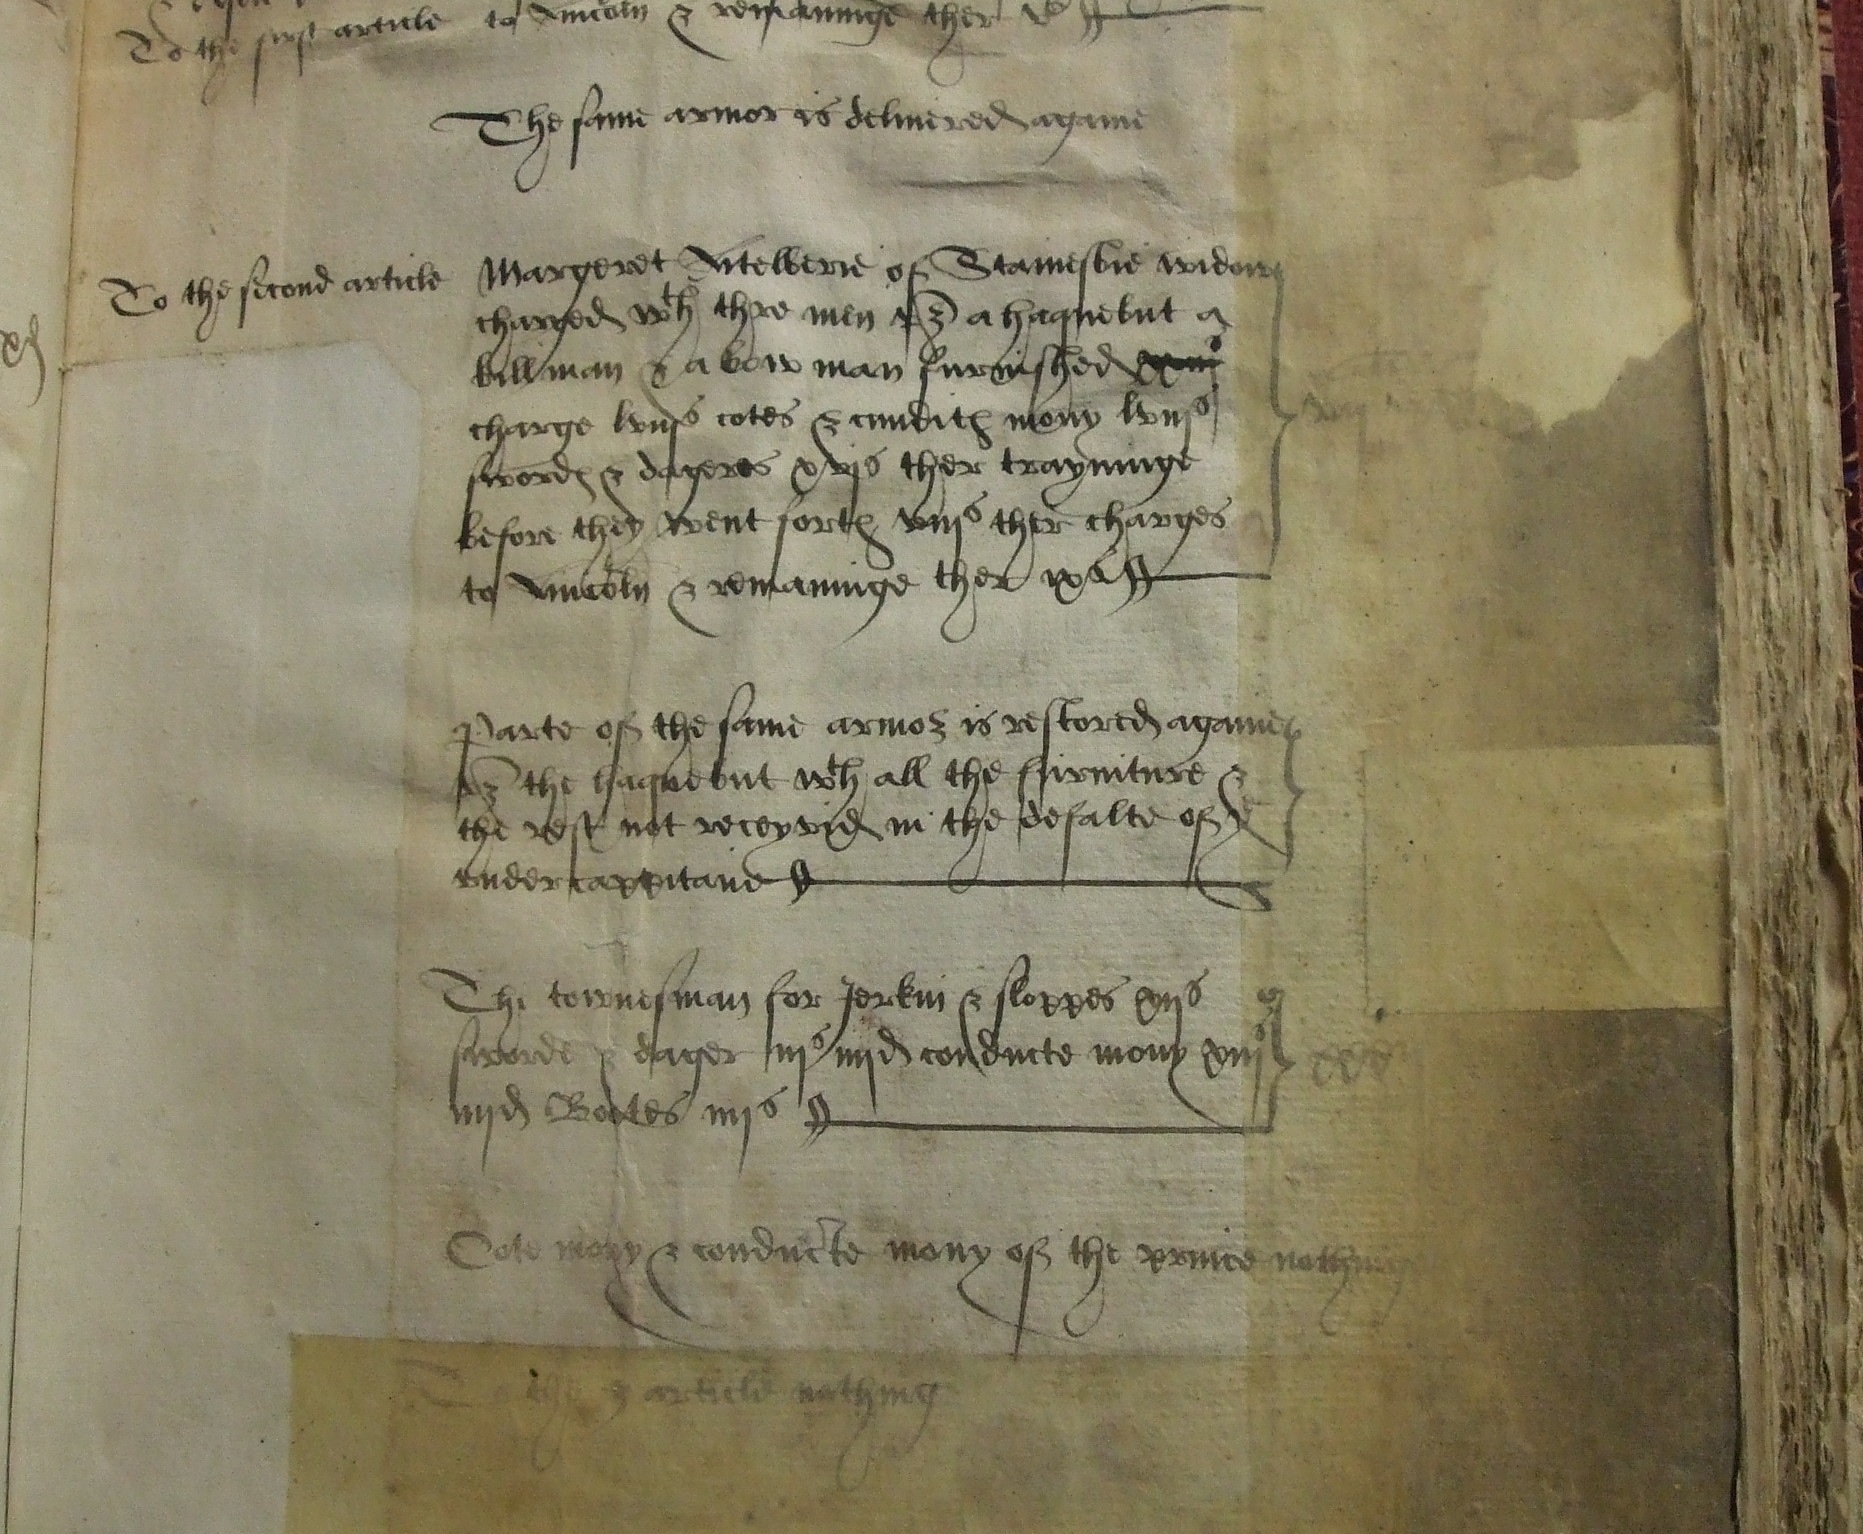 To the first article to Lincoln & remaininge ther
The same armor is delivered againe
To the second article Margeret Littelberie of Stainesbie widowe
charged wth thre men vz a haquebut a
billman & a bow man furnished
charge lviijs cotes & cundith mony lviijs
swordes & dageres xvjs ther trayninge
before they went forth viijs ther charges
to Lincoln & remaininge ther
Parte of the same armor is restored againe
vz the haquebut wth all the furniture &
the rest not receyvid in the defalte of ye
undercappitane
The townesman for Jerkin & sloppes xijs
sworde & dager iijs iiijd conducte mony xiijs
iiijd Bootes iiijs
Cote mony & conducte mony of the prince nothing
To the 3 article nothing